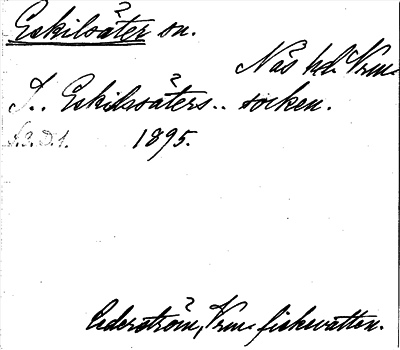 Eskilsäter sn.
Näs hd. Vrm.
I.. Eskilsäters.. socken.
1895.
Cederström, Vrm. fiskevatten.